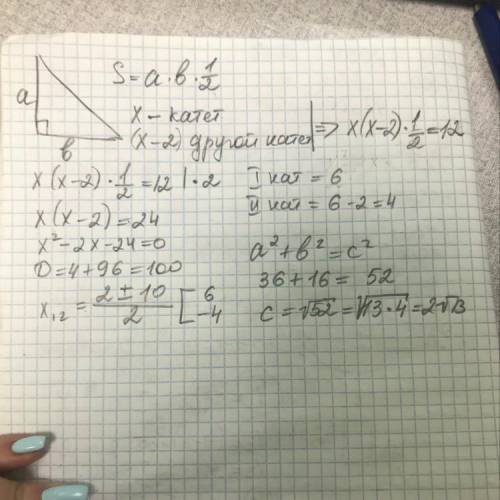 a
в
S = a · в · 1/2
x – катет
(x–2) другой катет | => x(x–2) · 1/2 = 12
x(x–2) · 1/2 = 12 | · 2
x(x–2) = 24
x² – 2x – 24 = 0
D = 4 + 96 = 100
x₁,₂ = (2 ± 10)/2 [ 6 –4
I кат = 6
II кат = 6 – 2 = 4
a² + в² = c²
36 + 16 = 52
c = √52 = √13·4 = 2√13